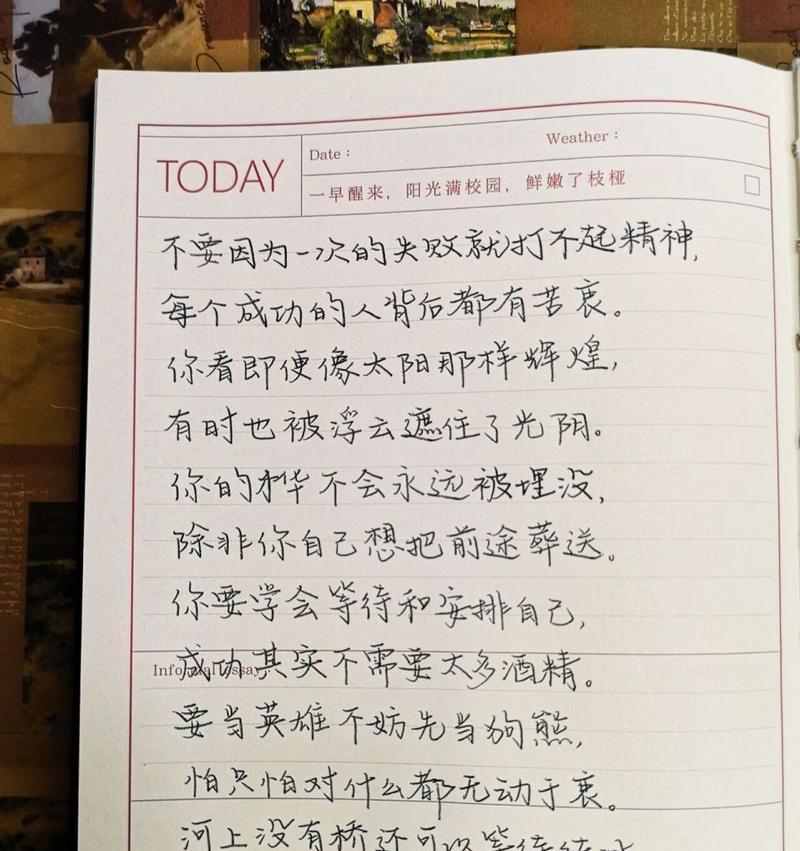 TODAY
Date：
Weather：
一早醒来，阳光满校园，鲜嫩了枝桠
不要因为一次的失败就打不起精神,
每个成功的人背后都有苦衷。
你看即便像太阳那样辉煌,
有时也被浮云遮住了光阴。
你的才华不会永远被埋没,
除非你自己想把前途葬送。
你要学会等待和安排自己,
成功其实不需要太多酒精。
Informal essay
要当英雄不妨先当狗熊,
怕只怕对什么都无动于衷。
河上没有桥还可以等待结冰